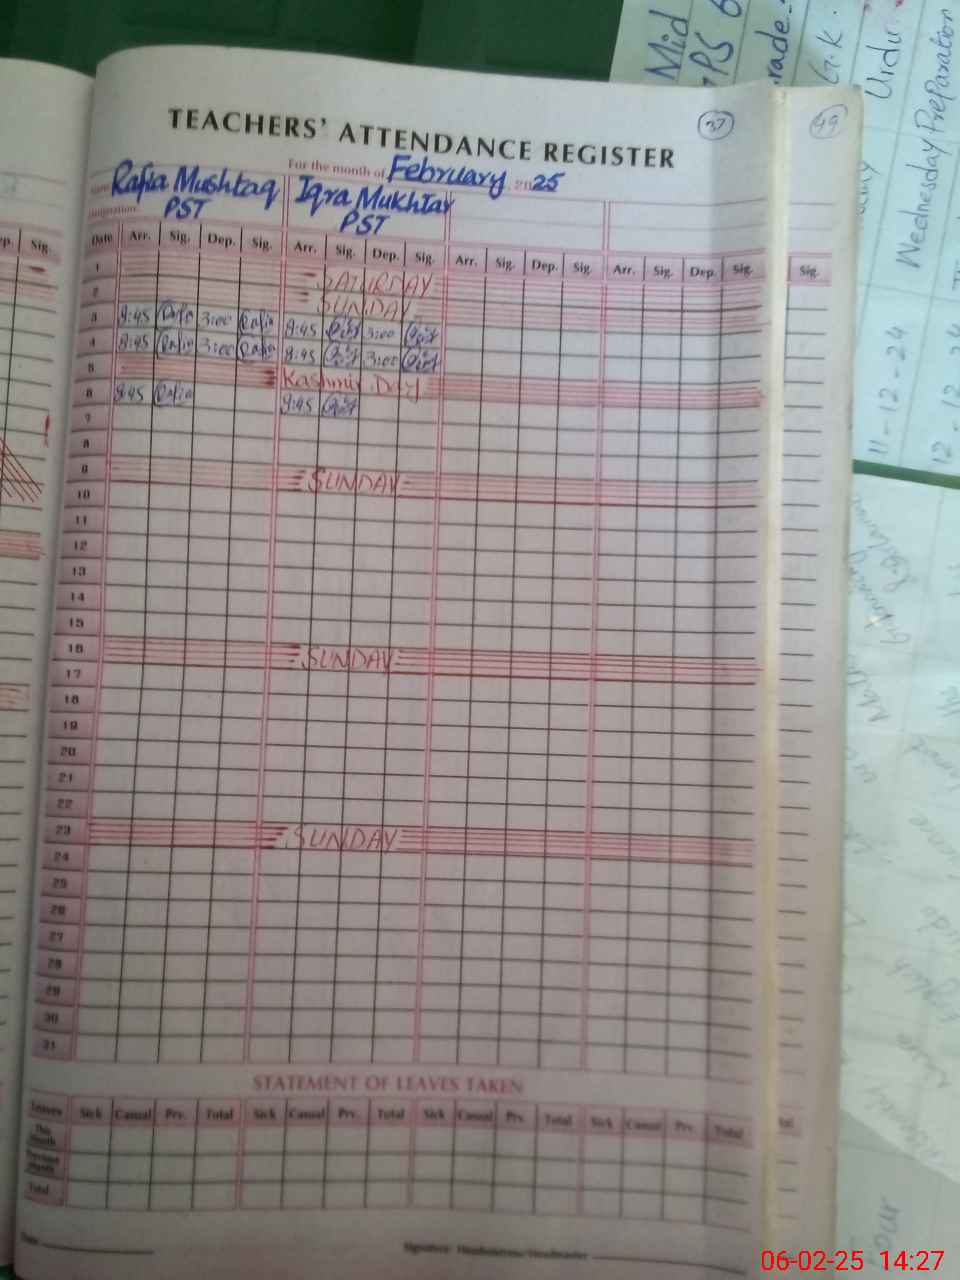 TEACHERS' ATTENDANCE REGISTER
37
49
For the month of February 2025
Name Rafia Mushtaq Iqra Mukhtar
Designation PST PST
Date Arr. Sig. Dep. Sig. Arr. Sig. Dep. Sig. Arr. Sig. Dep. Sig. Arr. Sig. Dep. Sig. Sig.
1 SATURDAY
2 SUNDAY
3 8:45 Rafia 3:00 Rafia 8:45 3:00
4 8:45 Rafia 3:00 Rafia 8:45 3:00
5 Kashmir Day
6 8:45 Rafia 8:45
7
8
9 SUNDAY
10
11
12
13
14
15
16 SUNDAY
17
18
19
20
21
22
23 SUNDAY
24
25
26
27
28
29
30
31
STATEMENT OF LEAVES TAKEN
Leaves Sick Casual Prv. Total Sick Casual Prv. Total Sick Casual Prv. Total Sick Casual Prv. Total
This Month
Previous Month
Total
Date
Signature Headmistress/Headmaster
Mid
G.K.
Urdu
Wednesday Preparation
11-12-24
06-02-25 14:27